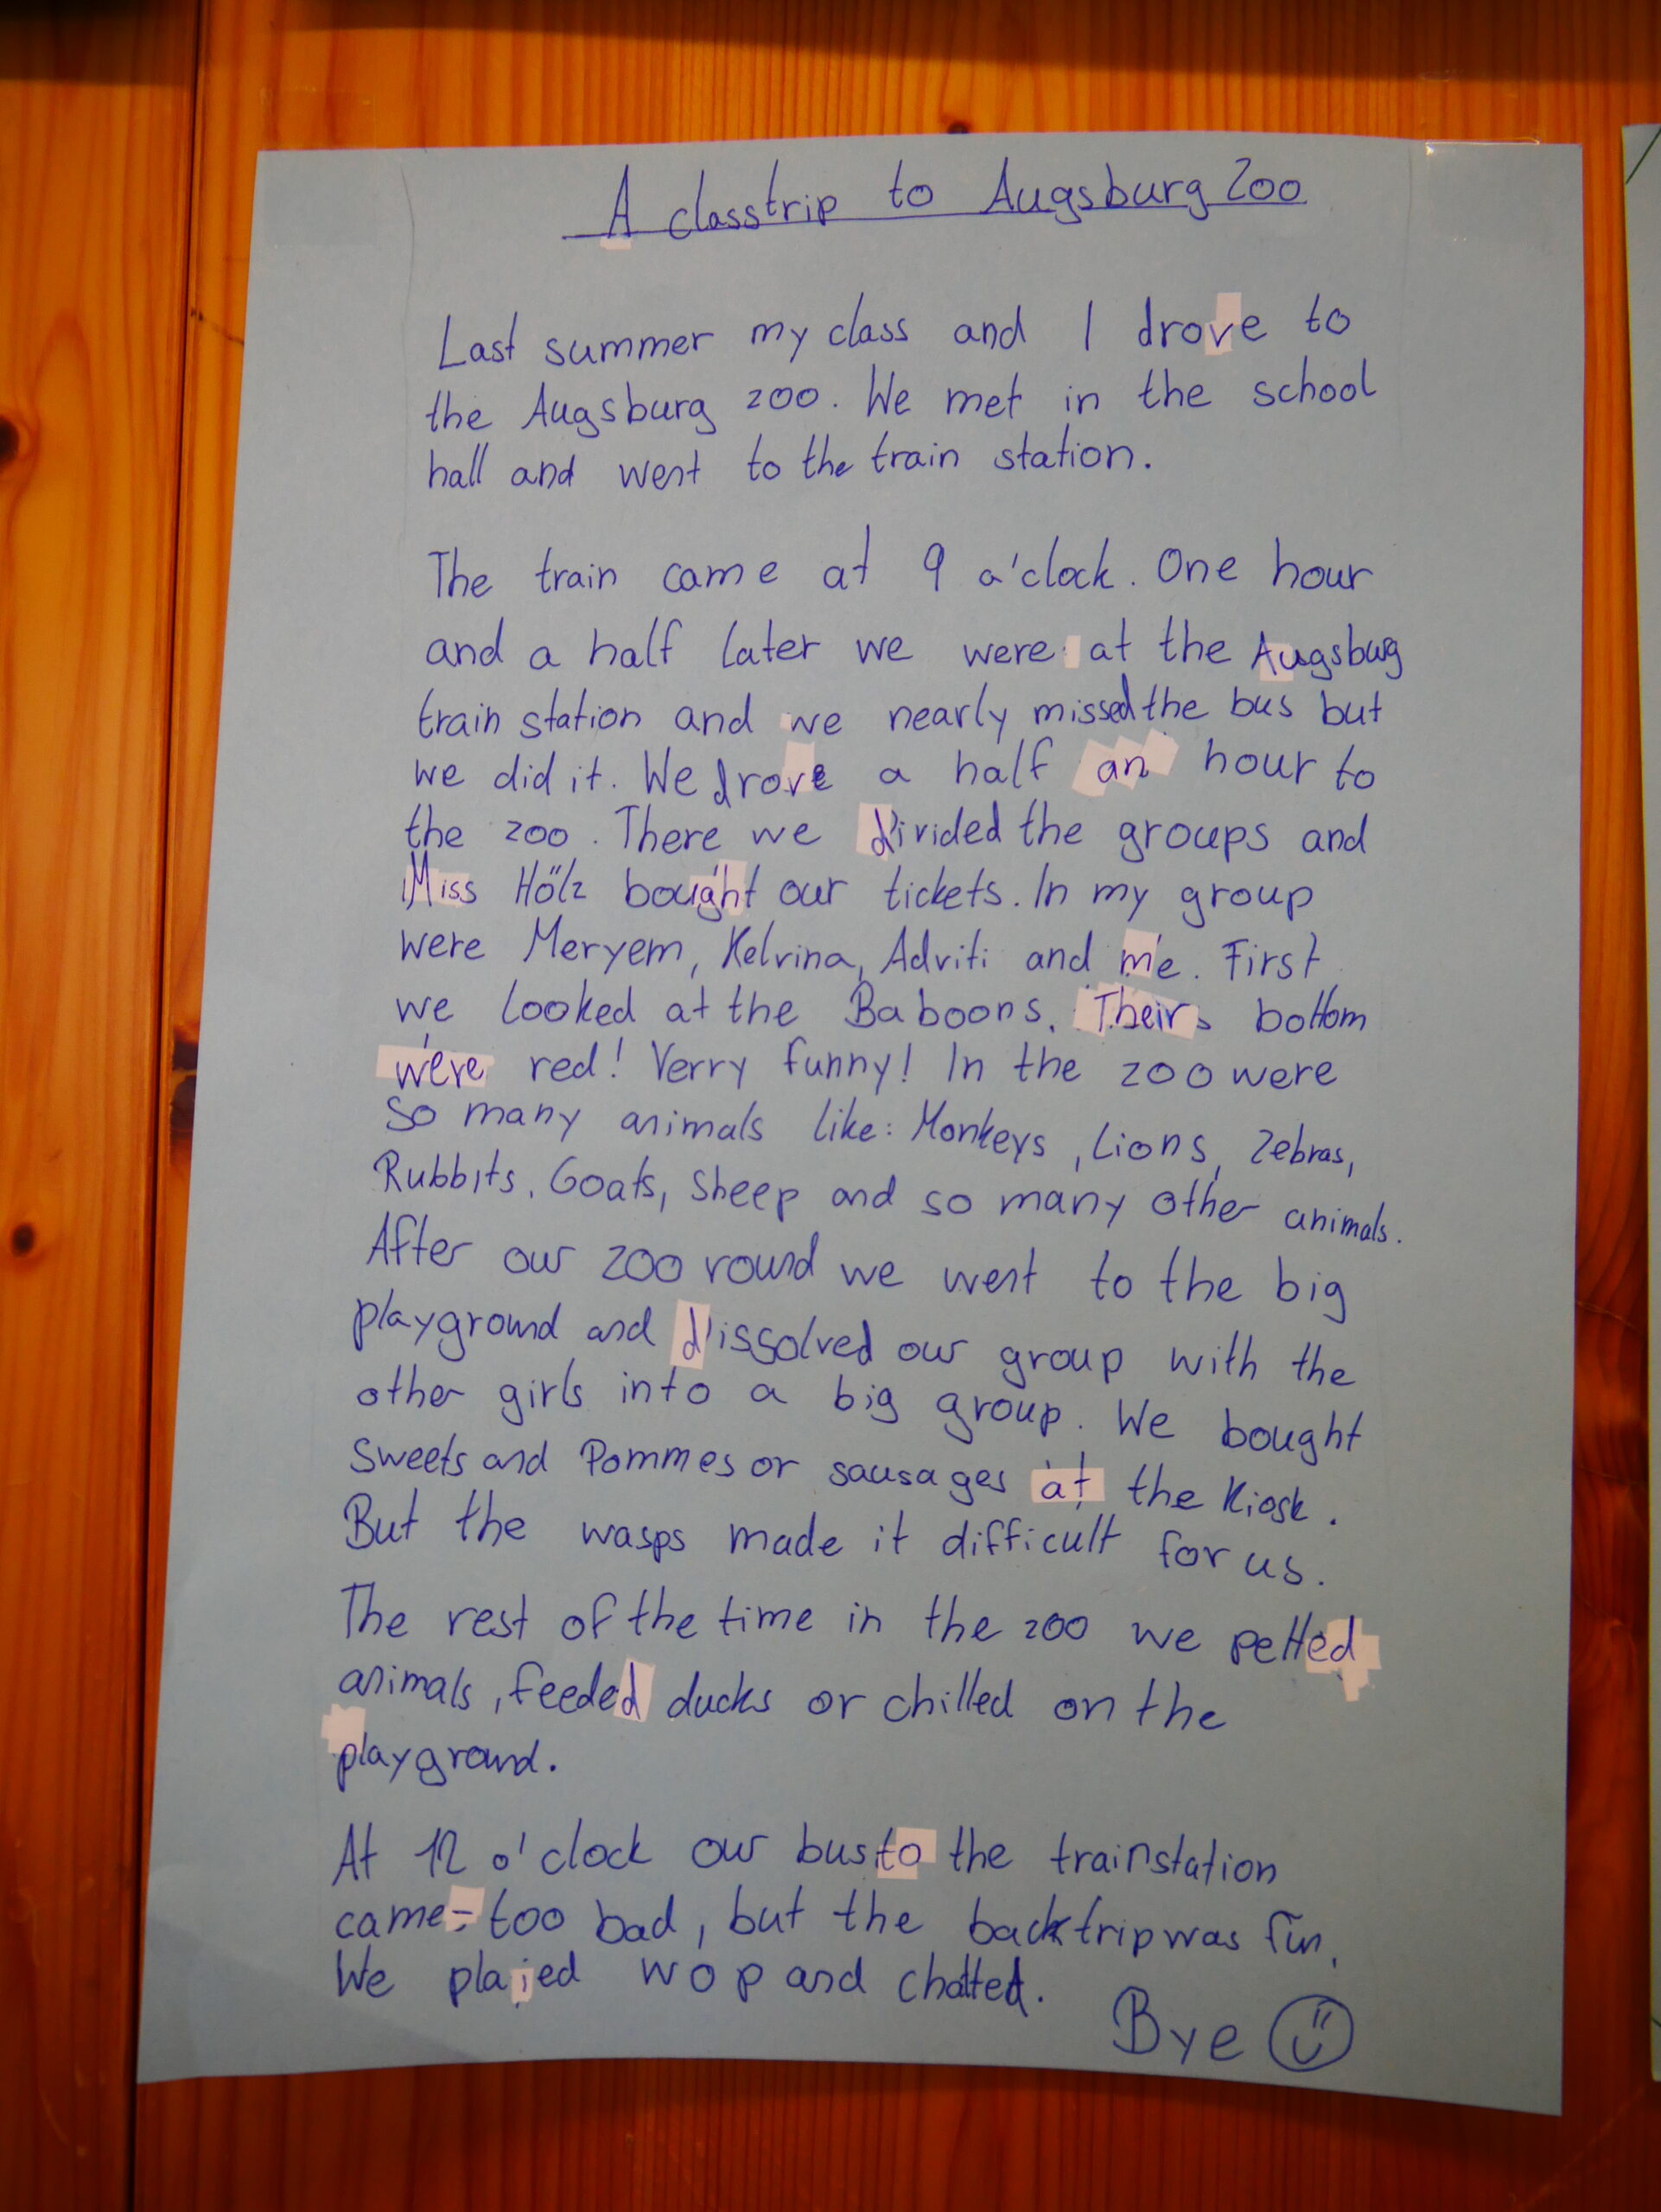 A classtrip to Augsburg Zoo
Last summer my class and I drove to
the Augsburg zoo. We met in the school
hall and went to the train station.
The train came at 9 o'clock. One hour
and a half later we were at the Augsburg
train station and we nearly missed the bus but
we did it. We drove a half an hour to
the zoo. There we divided the groups and
Miss Hölz bought our tickets. In my group
were Meryem, Kelvina, Adviti and me. First
we looked at the Baboons. Theirs bottom
were red! Verry funny! In the zoo were
so many animals like: Monkeys, Lions, Zebras,
Rubbits, Goats, Sheep and so many other animals.
After our zoo round we went to the big
playground and dissolved our group with the
other girls into a big group. We bought
Sweets and Pommes or sausages at the Kiosk.
But the wasps made it difficult for us.
The rest of the time in the zoo we petted
animals, feeded ducks or chilled on the
playground.
At 12 o'clock our bus to the trainstation
came - too bad, but the backtrip was fun.
We plaied wop and chatted.
Bye